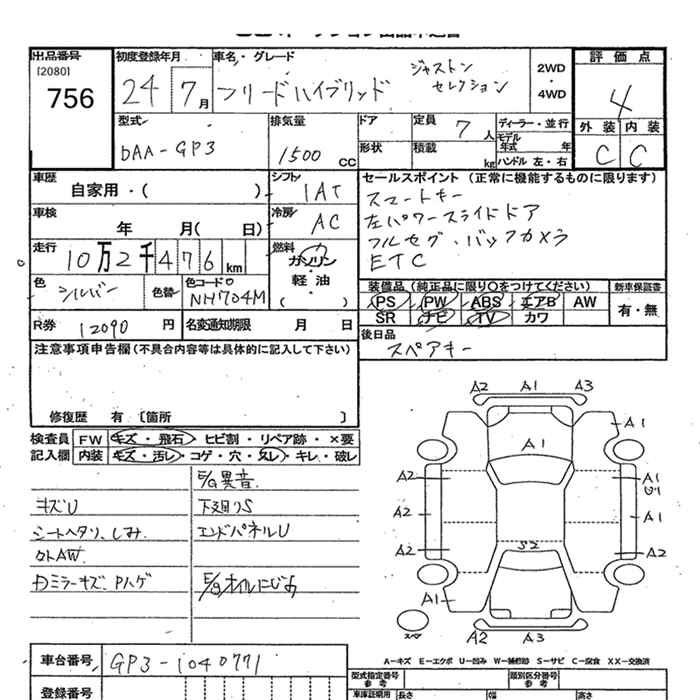 出品番号
[2080]
756
初度登録年月
24 7月
車名・グレード
フリードハイブリッド
ジャストン
セレクション
2WD
・
4WD
評価点
4
外装 内装
C C
型式
DAA-GP3
排気量
1500 CC
ドア
形状
定員 7 人
積載 kg
ディーラー・並行
モデル
年式 年
ハンドル 左・右
車歴
自家用・( )
シフト
1AT
車検
年 月( 日)
冷房
AC
走行
10万2千476km
燃料
ガソリン
・
軽油
( )
色
シルバー
色替
色コードO
NH704M
R券 12090 円
名変通知期限 月 日
セールスポイント(正常に機能するものに限ります)
スマートキー
左パワースライドドア
フルセグ、バックカメラ
ETC
装備品(純正品に限り○をつけてください)
新車保証書
PS PW ABS エアB AW
有・無
SR ナビ TV カワ
後日品
スペアキー
注意事項申告欄(不具合内容等は具体的に記入して下さい)
修復歴 有〔箇所 〕
検査員
記入欄
FW キズ・飛石・ヒビ割・リペア跡・×要
内装 キズ・汚レ・コゲ・穴・スレ・キレ・破レ
E/G異音
キズU
下廻りS
シートヘタリ、しみ
エンドパネルU
外AW
Dミラーキズ、Pハゲ
E/Gオイルにじみ
A2 A1 A3
A1
A1
A2
A1
U1
A2
A1
A2
S2
A2
A1
スペア
A2 A3
A-キズ E-エクボ U-凹み W-補修跡 S-サビ C-腐食 XX-交換済
車台番号
GP3-1040771
登録番号
型式指定番号
参考
類別区分番号
参考
車庫証明用
長さ 幅 高さ